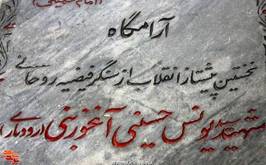 آرامگاه
نخستین پیشتاز انقلاب از سنگر فیضیه روحانی
شهید سید یونس حسینی آنخوربنی (رودباری)